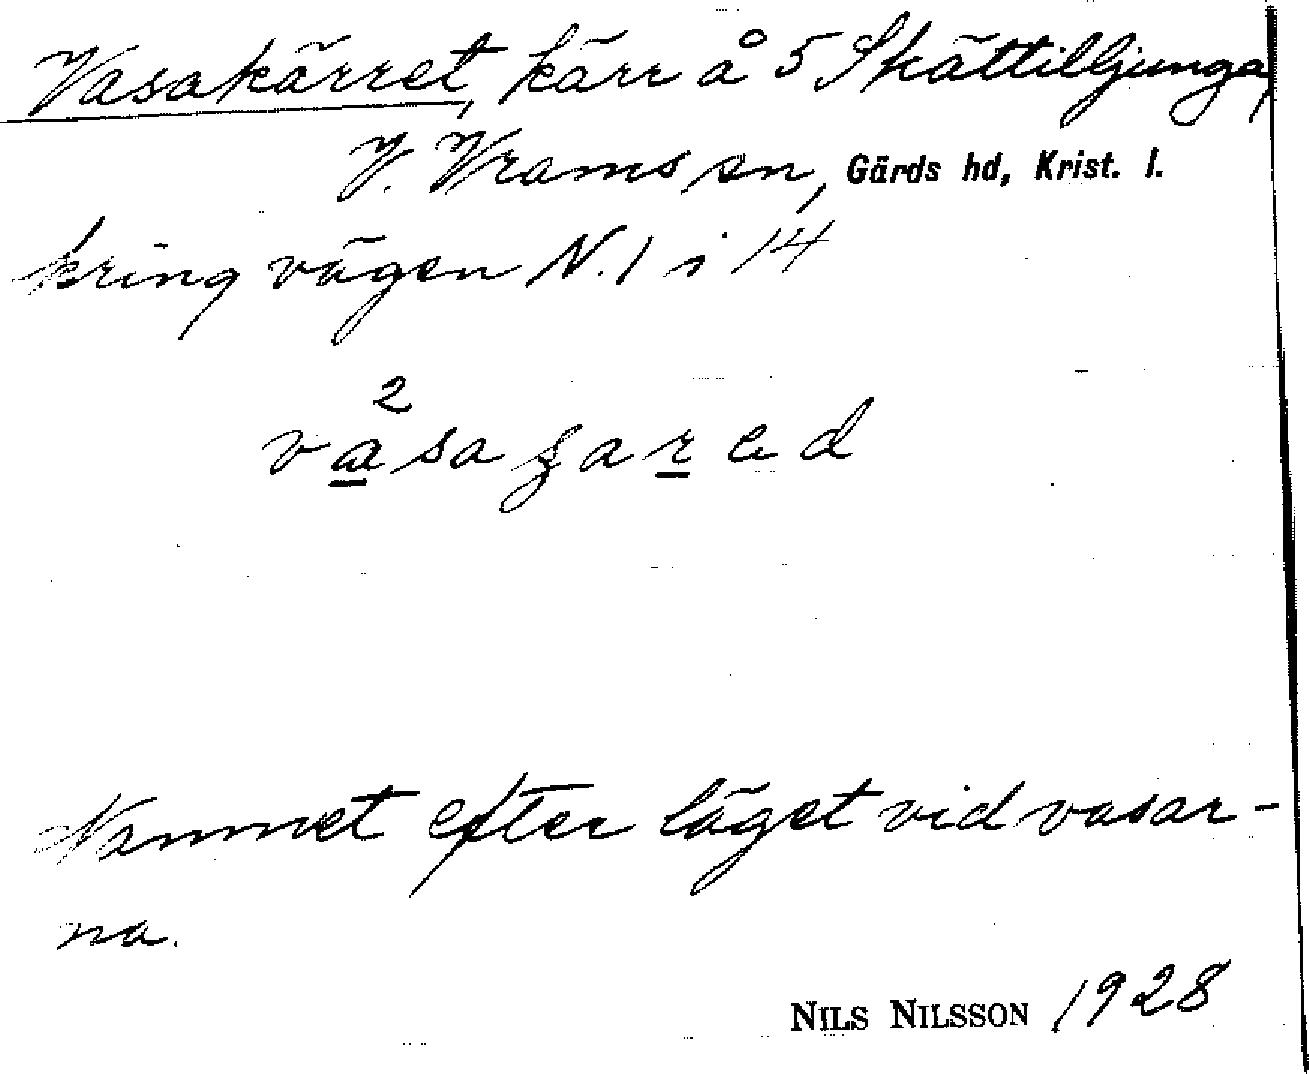 Vasakärret, kärr å 5 Skättilljunga,
V. Vrams sn, Gärds hd, Krist. l.
kring vägen N. 1 i 14
Namnet efter läget vid vasar-
na.
NILS NILSSON 1928